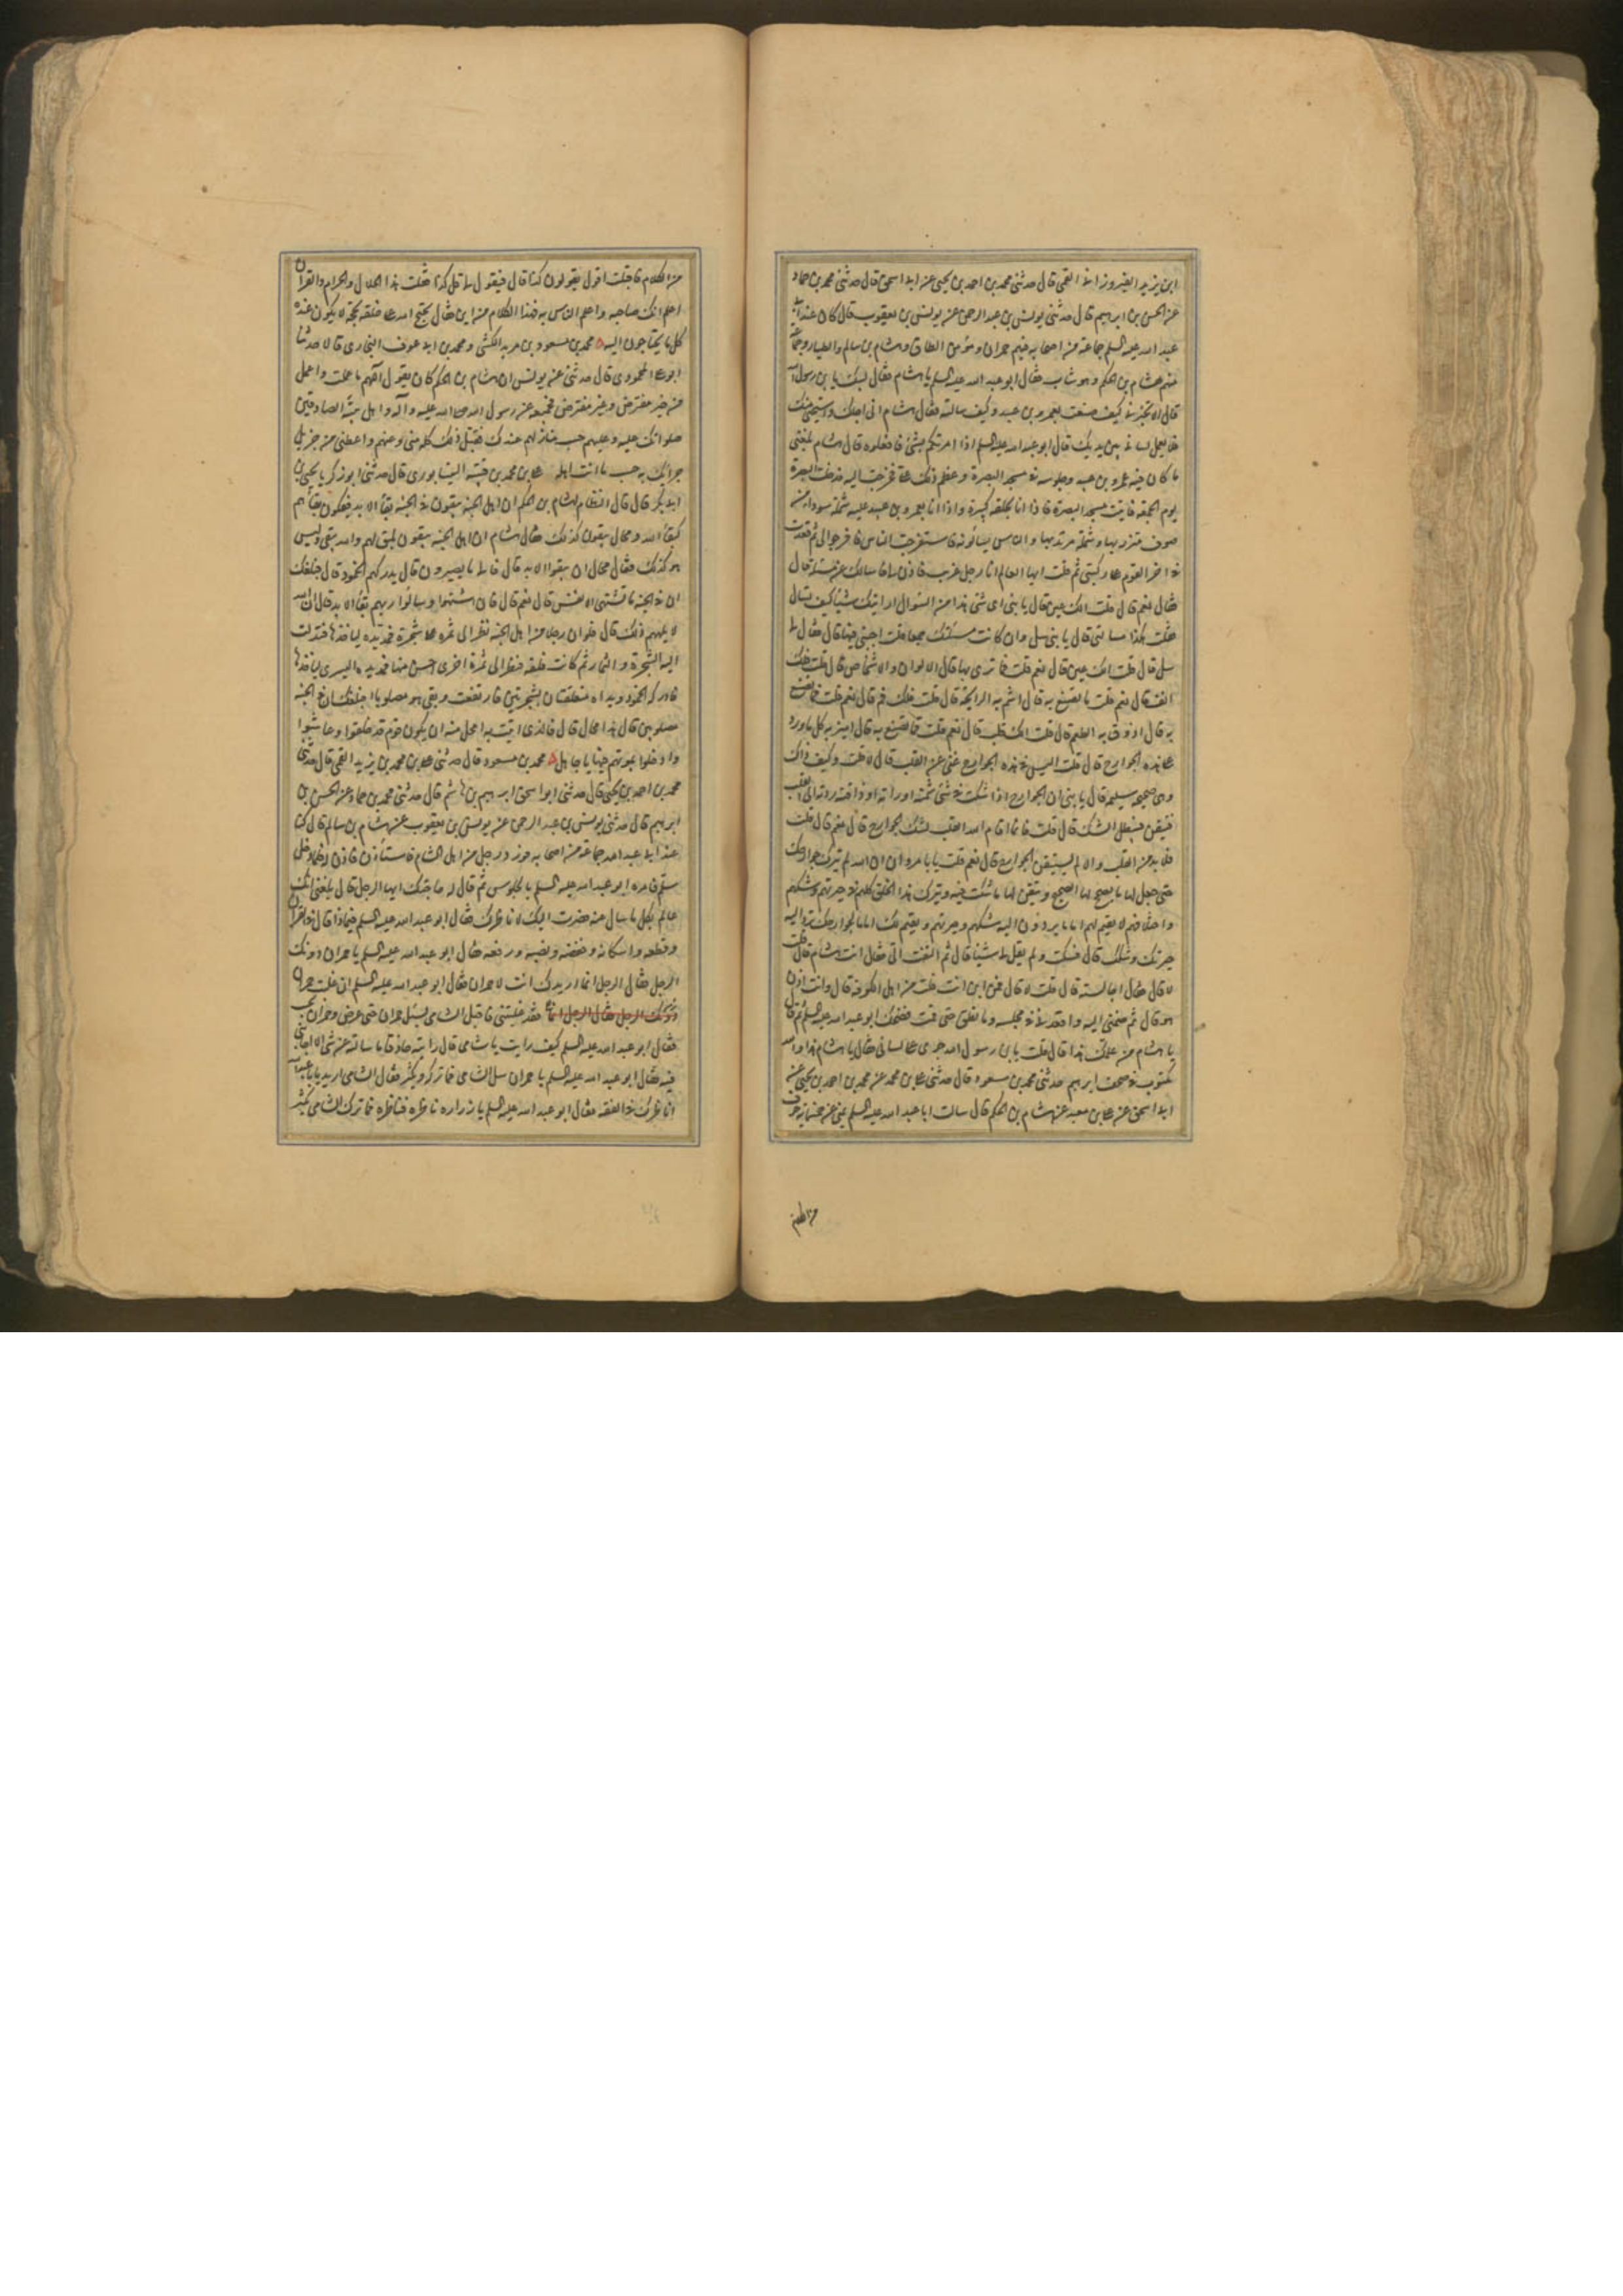 ابن يزيد الفيروزانى القمى قال حدثنى محمد بن احمد بن يحيى عن ابى اسحق قال حدثنى محمد بن حماد
عن الحسن بن ابرهيم قال حدثنى يونس بن عبد الرحمن عن يونس بن يعقوب قال كان عند ابى
عبد الله عليه السلم جماعة من اصحابه فيهم حمران ومؤمن الطاق وهشام بن سالم والطيار وجماعة
فيهم هشام بن الحكم وهو شاب فقال ابو عبد الله عليه السلم يا هشام فقال لبيك يا بن رسول الله
قال الا تخبرنى كيف صنعت بعمرو بن عبيد وكيف سالته فقال هشام انى اجلك واستحيى منك
فلا يعمل لسانى بين يديك قال ابو عبد الله عليه السلم اذا امرتكم بشئ فافعلوه قال هشام بلغنى
ما كان فيه عمرو بن عبيد وجلوسه فى مسجد البصرة وعظم ذلك على فخرجت اليه فدخلت البصرة
يوم الجمعة فاتيت مسجد البصرة فاذا انا بحلقة كبيرة واذا انا بعمرو بن عبيد عليه شملة سوداء من
صوف متزر بها وشملة مرتد بها والناس يسألونه فاستفرجت الناس فافرجوا لى ثم قعدت
فى اخر القوم على ركبتى ثم قلت ايها العالم انا رجل غريب فاذن لى فاسالك عن مسئلة قال
فقال نعم قال قلت الك عين قال يا بنى اى شئ هذا من السؤال ارايتك شيئا كيف تسال
فقلت هكذا مسالتى قال يا بنى سل وان كانت مسئلتك حمقا قلت اجبنى فيها قال فقال لى
سل قال قلت الك عين قال نعم قلت فما ترى بها قال الالوان والاشخاص قال قلت فلك
انف قال نعم قلت ما تصنع به قال اشم به الرايحة قال قلت فلك فم قال نعم قلت فما تصنع
به قال اذوق به الطعم قال قلت الك قلب قال نعم قلت فما تصنع به قال اميز به كل ما ورد
على هذه الجوارح قال قلت اليس فى هذه الجوارح غنى عن القلب قال لا قلت وكيف ذاك
وهى صحيحة سليمة قال يا بنى ان الجوارح اذا شكت فى شئ شمته او راته او ذاقته ردته الى القلب
فتيقن ويبطل الشك قال قلت فانما اقام الله القلب لشك الجوارح قال نعم قال قلت
فلا بد من القلب والا لم يستيقن الجوارح قال نعم قلت يا با مروان ان الله لم يترك جوارحك
حتى جعل لها ما يصحح لها الصحيح ويتيقن لها ما شكت فيه ويترك هذا الخلق كلهم فى حيرتهم وشكهم
واختلافهم لا يقيم لهم اماما يردون اليه شكهم وحيرتهم ويقيم لك اماما لجوارحك ترد اليه
حيرتك وشكك قال فسكت ولم يقل لى شيئا قال ثم التفت الى فقال انت هشام قال قلت
لا قال فقال اجالسته قال قلت لا قال فمن اين انت قلت من اهل الكوفة قال وانت اذن
هو قال ثم ضمنى اليه واقعدنى فى مجلسه وما نطق حتى قمت فضحك ابو عبد الله عليه السلم ثم قال
يا هشام من علمك هذا قال قلت يا بن رسول الله جرى على لسانى فقال يا هشام هذا والله
مكتوب فى صحف ابرهيم حدثنى محمد بن مسعود قال حدثنى على بن محمد عن محمد بن احمد بن يحيى عن
ابى اسحق عن على بن معبد عن هشام بن الحكم قال سالت ابا عبد الله عليه السلم بمنى عن خمسمائة حرف
من الكلم
من الكلام فاقبلت اقول يقولون كذا قال فيقول لى قل كذا فقلت هذا الحلال والحرام والقران
اعلم انك صاحبه واعلم الناس به فهذا الكلام من اين فقال يحتج الله على خلقه بحجة لا يكون عنده
كل ما يحتاجون اليه محمد بن مسعود بن مزيد الكشى ومحمد بن ابى عوف البخارى قالا حدثنا
ابو على المحمودى قال حدثنى عن يونس ان هشام بن الحكم كان يقول اللهم ما عملت واعمل
من خير مفترض وغير مفترض فجميعه عن رسول الله صلى الله عليه واله واهل بيته الصادقين
صلواتك عليه وعليهم حسب منازلهم عندك فتقبل ذلك كله منى وعنهم واعطنى من جزيل
جزائك به حسب ما انت اهله على بن محمد بن قتيبة النيسابورى قال حدثنى ابو زكريا يحيى بن
ابى بكر قال قال النظام لهشام بن الحكم ان اهل الجنة يبقون فى الجنة بقاء الابد فيكون بقاءهم
كبقاء الله ومحال يبقون كذلك فقال هشام ان اهل الجنة يبقون بمبق لهم والله يبقى وليس
هو كذلك فقال محال ان يبقوا الابد قال قال ما يصيرون قال يدركهم الخمود قال فبلغك
ان فى الجنة ما تشتهى الانفس قال نعم قال فان اشتهوا وسالوا ربهم بقاء الابد قال ان الله
لا يلهمهم ذلك قال فلو ان رجلا من اهل الجنة نظر الى ثمرة على شجرة فمد يده لياخذها فتدلت
اليه الشجرة والثمار ثم كانت فلتة فنظر الى ثمرة اخرى احسن منها فمد يده اليسرى لياخذها
فادركه الخمود ويداه متعلقتان بشجرتين فارتفعت وبقى هو مصلوبا فبلغك ان فى الجنة
مصلوبين قال هذا محال قال فالذى اتيت به امحل منه ان يكون قوم قد خلقوا وعاشوا
وادخلوا بموتهم فيها يا جاهل محمد بن مسعود قال حدثنى على بن محمد بن يزيد القمى قال حدثنى
محمد بن احمد بن يحيى قال حدثنى ابو اسحق ابرهيم بن هاشم قال حدثنى محمد بن حماد عن الحسن بن
ابرهيم قال حدثنى يونس بن عبد الرحمن عن يونس بن يعقوب عن هشام بن سالم قال كنا
عند ابى عبد الله جماعة من اصحابه فورد رجل من اهل الشام فاستأذن فاذن له فلما دخل
سلم فامره ابو عبد الله عليه السلم بالجلوس ثم قال له حاجتك ايها الرجل قال بلغنى انك
عالم بكل ما تسال عنه فصرت اليك لاناظرك فقال ابو عبد الله عليه السلم فيما ذا قال فى القران
وقطعه واسكانه وخفضه ونصبه ورفعه فقال ابو عبد الله عليه السلم يا حمران دونك
الرجل فقال الرجل انما اريدك انت لا حمران فقال ابو عبد الله عليه السلم ان غلبت حمران
دونك الرجل فقال الرجل انما فقد غلبتنى فاقبل الشامى يسئل حمران حتى عرض وحمران يجيبه
فقال ابو عبد الله عليه السلم كيف رايت يا شامى قال رايته حاذقا ما سالته عن شئ الا اجابنى
فيه فقال ابو عبد الله عليه السلم يا حمران سل الشامى فما تركه يكشر فقال الشامى اريد يا با عبد الله
اناظرك فى الفقه فقال ابو عبد الله عليه السلم يا زراره ناظره فناظره فما ترك الشامى يكشر